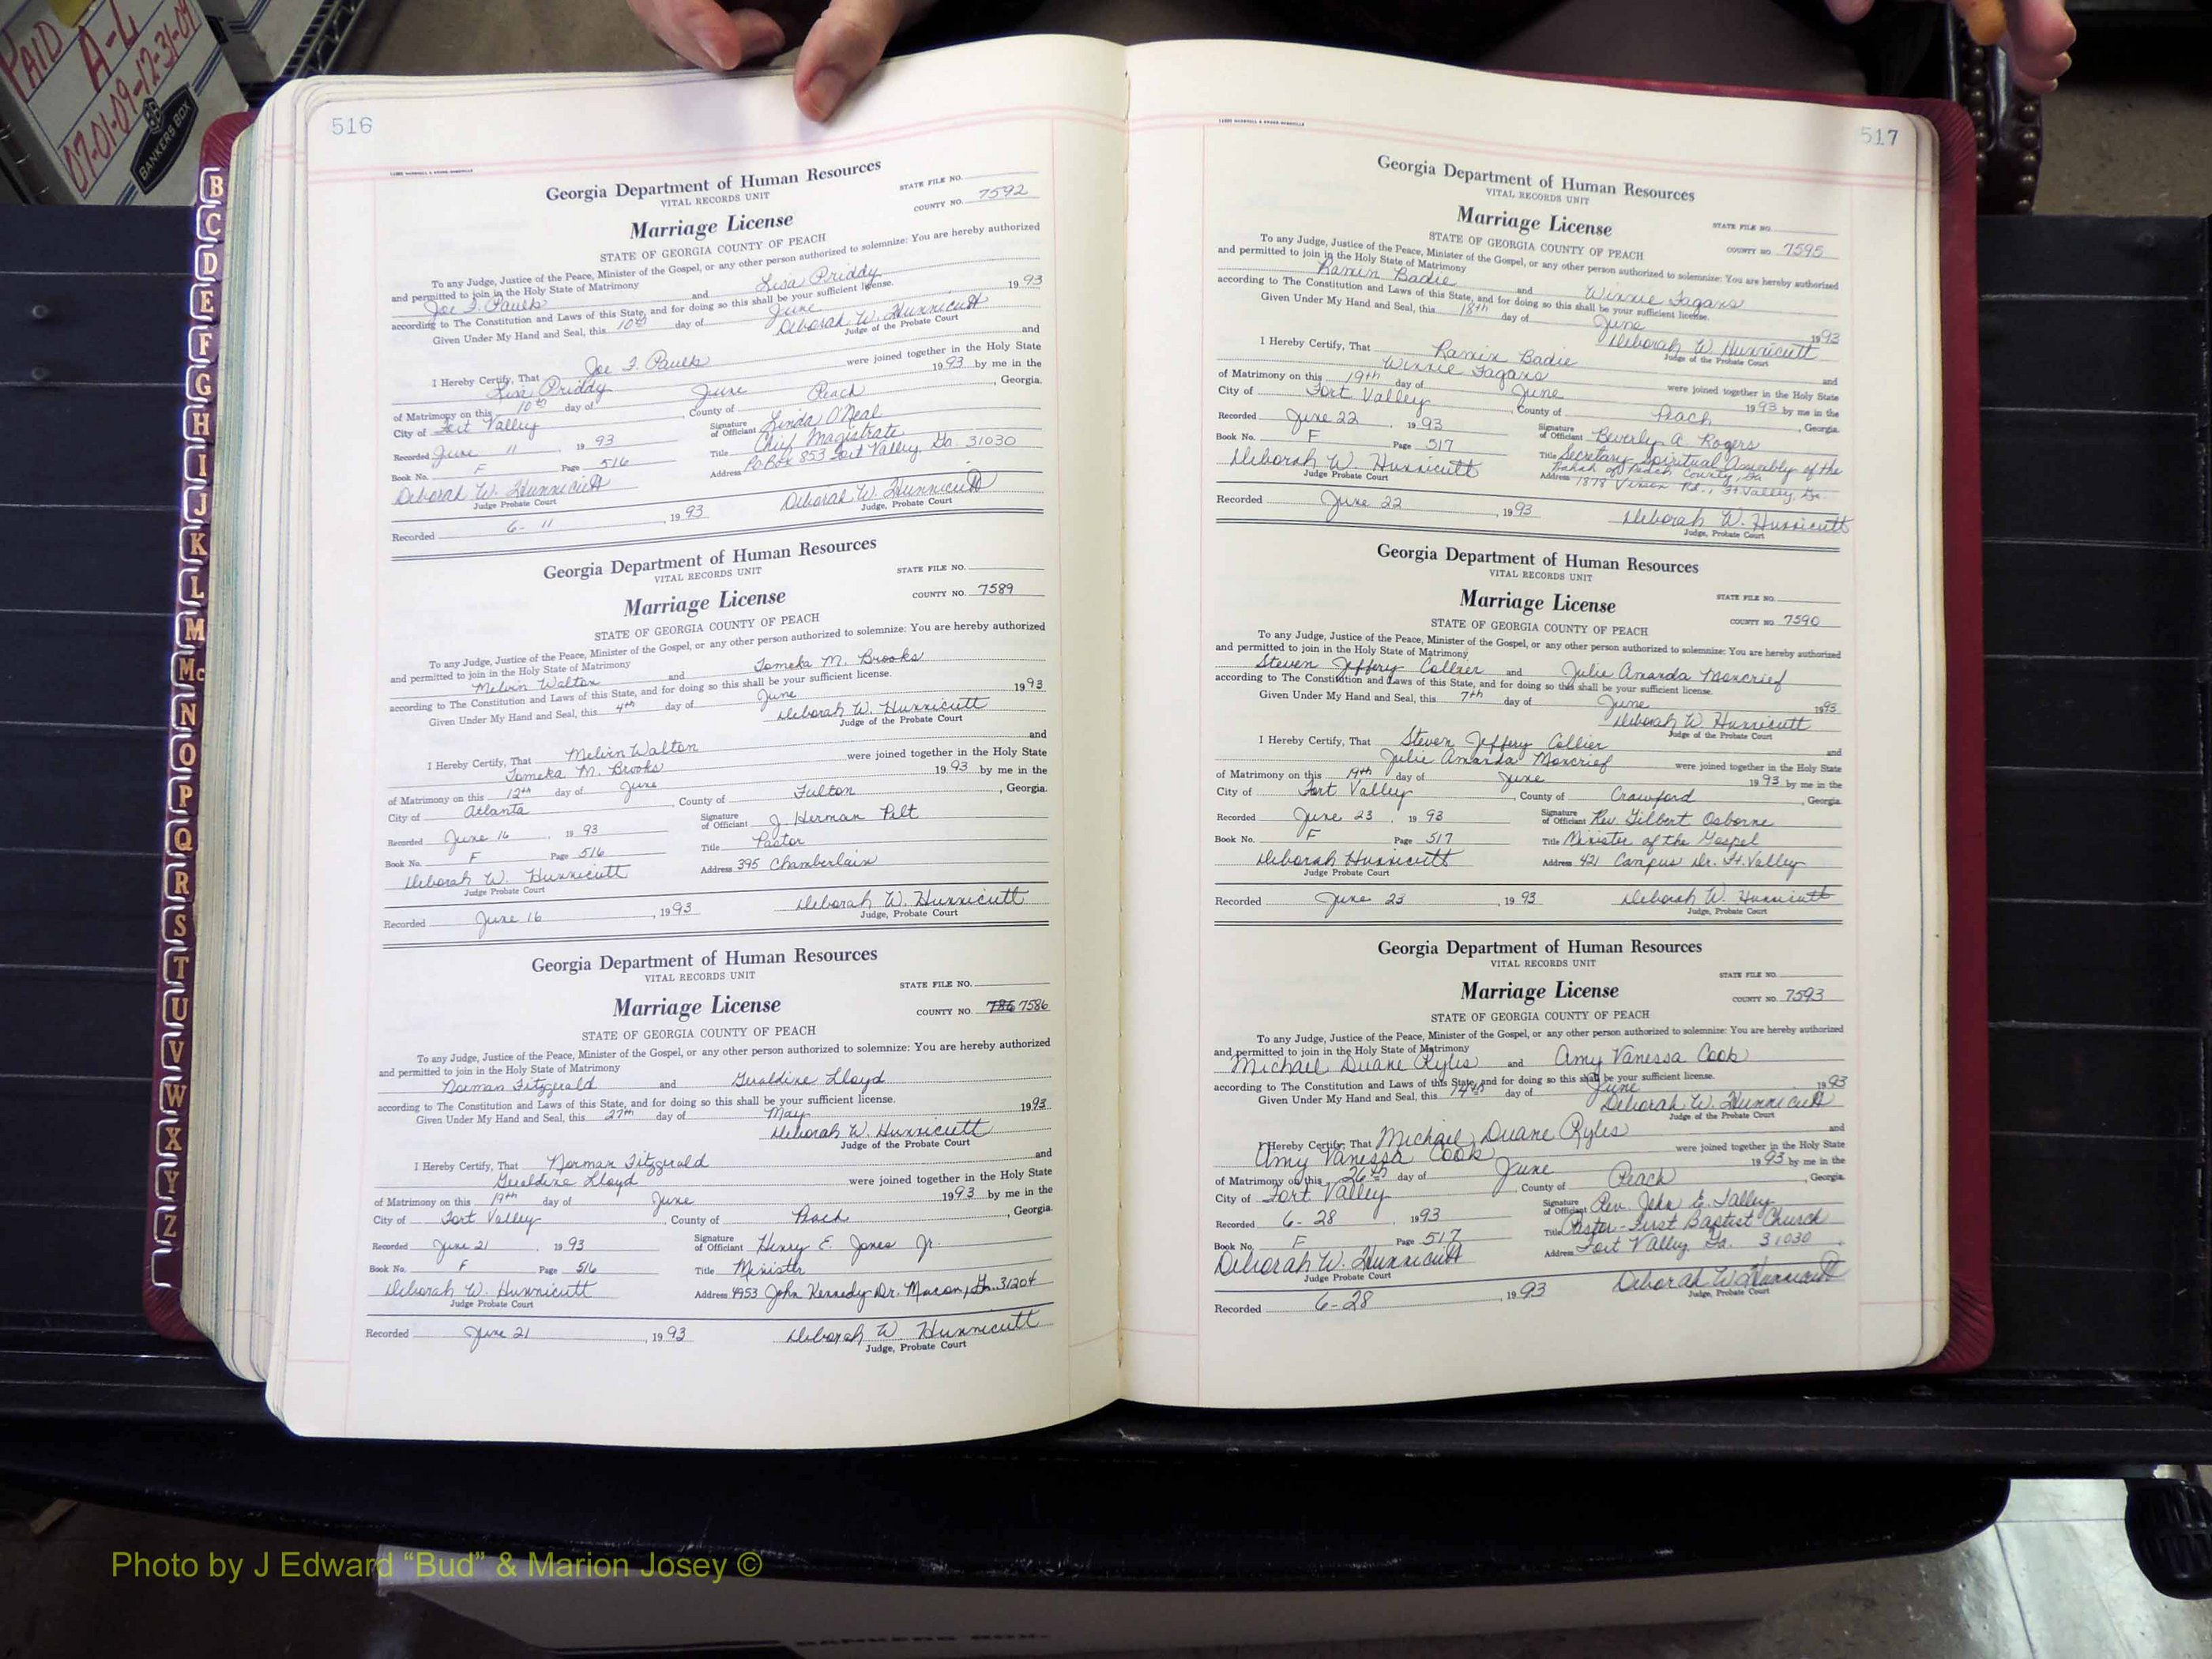 PAID
A-L
07-01-09-12-31-09
BANKERS BOX
B
C
D
E
F
G
H
I
J
K
L
M
Mc
N
O
P
Q
R
S
T
U
V
W
X
Y
Z
516
Georgia Department of Human Resources
VITAL RECORDS UNIT
STATE FILE NO.
COUNTY NO. 7592
Marriage License
STATE OF GEORGIA COUNTY OF PEACH
To any Judge, Justice of the Peace, Minister of the Gospel, or any other person authorized to solemnize: You are hereby authorized
and permitted to join in the Holy State of Matrimony
Joe F. Paulk and Lisa Priddy
according to The Constitution and Laws of this State, and for doing so this shall be your sufficient license.
Given Under My Hand and Seal, this 10th day of June 1993
Deborah W. Hunnicutt
Judge of the Probate Court
I Hereby Certify, That Joe F. Paulk and
Lisa Priddy were joined together in the Holy State
of Matrimony on this 10th day of June 1993 by me in the
City of Fort Valley, County of Peach, Georgia.
Recorded June 11, 1993 Signature of Officiant Linda O'Neal
Book No. F Page 516 Title Chief Magistrate
Deborah W. Hunnicutt Address PO Box 853 Fort Valley, Ga. 31030
Judge Probate Court
Recorded 6-11, 1993 Deborah W. Hunnicutt
Judge, Probate Court
Georgia Department of Human Resources
VITAL RECORDS UNIT
STATE FILE NO.
COUNTY NO. 7589
Marriage License
STATE OF GEORGIA COUNTY OF PEACH
To any Judge, Justice of the Peace, Minister of the Gospel, or any other person authorized to solemnize: You are hereby authorized
and permitted to join in the Holy State of Matrimony
Melvin Walton and Tomeka M. Brooks
according to The Constitution and Laws of this State, and for doing so this shall be your sufficient license.
Given Under My Hand and Seal, this 4th day of June 1993
Deborah W. Hunnicutt
Judge of the Probate Court
I Hereby Certify, That Melvin Walton and
Tomeka M. Brooks were joined together in the Holy State
of Matrimony on this 12th day of June 1993 by me in the
City of Atlanta, County of Fulton, Georgia.
Recorded June 16, 1993 Signature of Officiant J. Herman Pelt
Book No. F Page 516 Title Pastor
Deborah W. Hunnicutt Address 395 Chamberlain
Judge Probate Court
Recorded June 16, 1993 Deborah W. Hunnicutt
Judge, Probate Court
Georgia Department of Human Resources
VITAL RECORDS UNIT
STATE FILE NO.
COUNTY NO. 7586
Marriage License
STATE OF GEORGIA COUNTY OF PEACH
To any Judge, Justice of the Peace, Minister of the Gospel, or any other person authorized to solemnize: You are hereby authorized
and permitted to join in the Holy State of Matrimony
Norman Fitzgerald and Geraldine Lloyd
according to The Constitution and Laws of this State, and for doing so this shall be your sufficient license.
Given Under My Hand and Seal, this 27th day of May 1993
Deborah W. Hunnicutt
Judge of the Probate Court
I Hereby Certify, That Norman Fitzgerald and
Geraldine Lloyd were joined together in the Holy State
of Matrimony on this 19th day of June 1993 by me in the
City of Fort Valley, County of Peach, Georgia.
Recorded June 21, 1993 Signature of Officiant Henry E. Jones Jr.
Book No. F Page 516 Title Minister
Deborah W. Hunnicutt Address 4953 John Kennedy Dr. Macon, Ga. 31204
Judge Probate Court
Recorded June 21, 1993 Deborah W. Hunnicutt
Judge, Probate Court
517
Georgia Department of Human Resources
VITAL RECORDS UNIT
Marriage License
STATE FILE NO.
STATE OF GEORGIA COUNTY OF PEACH
COUNTY NO. 7595
To any Judge, Justice of the Peace, Minister of the Gospel, or any other person authorized to solemnize: You are hereby authorized
and permitted to join in the Holy State of Matrimony
Ramin Badie and Winnie Fagans
according to The Constitution and Laws of this State, and for doing so this shall be your sufficient license.
Given Under My Hand and Seal, this 18th day of June 1993
Deborah W. Hunnicutt
Judge of the Probate Court
I Hereby Certify, That Ramin Badie and
Winnie Fagans were joined together in the Holy State
of Matrimony on this 19th day of June 1993 by me in the
City of Fort Valley, County of Peach, Georgia.
Recorded June 22, 1993 Signature of Officiant Beverly A. Rogers
Book No. F Page 517 Title Secretary, Spiritual Assembly of the
Deborah W. Hunnicutt of Peach County, Ga
Judge Probate Court Address 1878 Vinson Rd., Ft. Valley, Ga.
Recorded June 22, 1993 Deborah W. Hunnicutt
Judge, Probate Court
Georgia Department of Human Resources
VITAL RECORDS UNIT
STATE FILE NO.
Marriage License
COUNTY NO. 7590
STATE OF GEORGIA COUNTY OF PEACH
To any Judge, Justice of the Peace, Minister of the Gospel, or any other person authorized to solemnize: You are hereby authorized
and permitted to join in the Holy State of Matrimony
Steven Jeffery Collier and Julie Amanda Moncrief
according to The Constitution and Laws of this State, and for doing so this shall be your sufficient license.
Given Under My Hand and Seal, this 7th day of June 1993
Deborah W. Hunnicutt
Judge of the Probate Court
I Hereby Certify, That Steven Jeffery Collier and
Julie Amanda Moncrief were joined together in the Holy State
of Matrimony on this 19th day of June 1993 by me in the
City of Fort Valley, County of Crawford, Georgia.
Recorded June 23, 1993 Signature of Officiant Rev. Gilbert Osborne
Book No. F Page 517 Title Minister of the Gospel
Deborah Hunnicutt Address 421 Campus Dr. Ft. Valley
Judge Probate Court
Recorded June 23, 1993 Deborah W. Hunnicutt
Judge, Probate Court
Georgia Department of Human Resources
VITAL RECORDS UNIT
STATE FILE NO.
Marriage License
COUNTY NO. 7593
STATE OF GEORGIA COUNTY OF PEACH
To any Judge, Justice of the Peace, Minister of the Gospel, or any other person authorized to solemnize: You are hereby authorized
and permitted to join in the Holy State of Matrimony
Michael Duane Ryles and Amy Vanessa Cook
according to The Constitution and Laws of this State, and for doing so this shall be your sufficient license.
Given Under My Hand and Seal, this 14th day of June 1993
Deborah W. Hunnicutt
Judge of the Probate Court
I Hereby Certify, That Michael Duane Ryles and
Amy Vanessa Cook were joined together in the Holy State
of Matrimony on this 26th day of June 1993 by me in the
City of Fort Valley, County of Peach, Georgia.
Recorded 6-28, 1993 Signature of Officiant Rev. John E. Talley
Book No. F Page 517 Title Pastor-First Baptist Church
Deborah W. Hunnicutt Address Fort Valley, Ga. 31030
Judge Probate Court
Recorded 6-28, 1993 Deborah W. Hunnicutt
Judge, Probate Court
Photo by J Edward “Bud” & Marion Josey ©